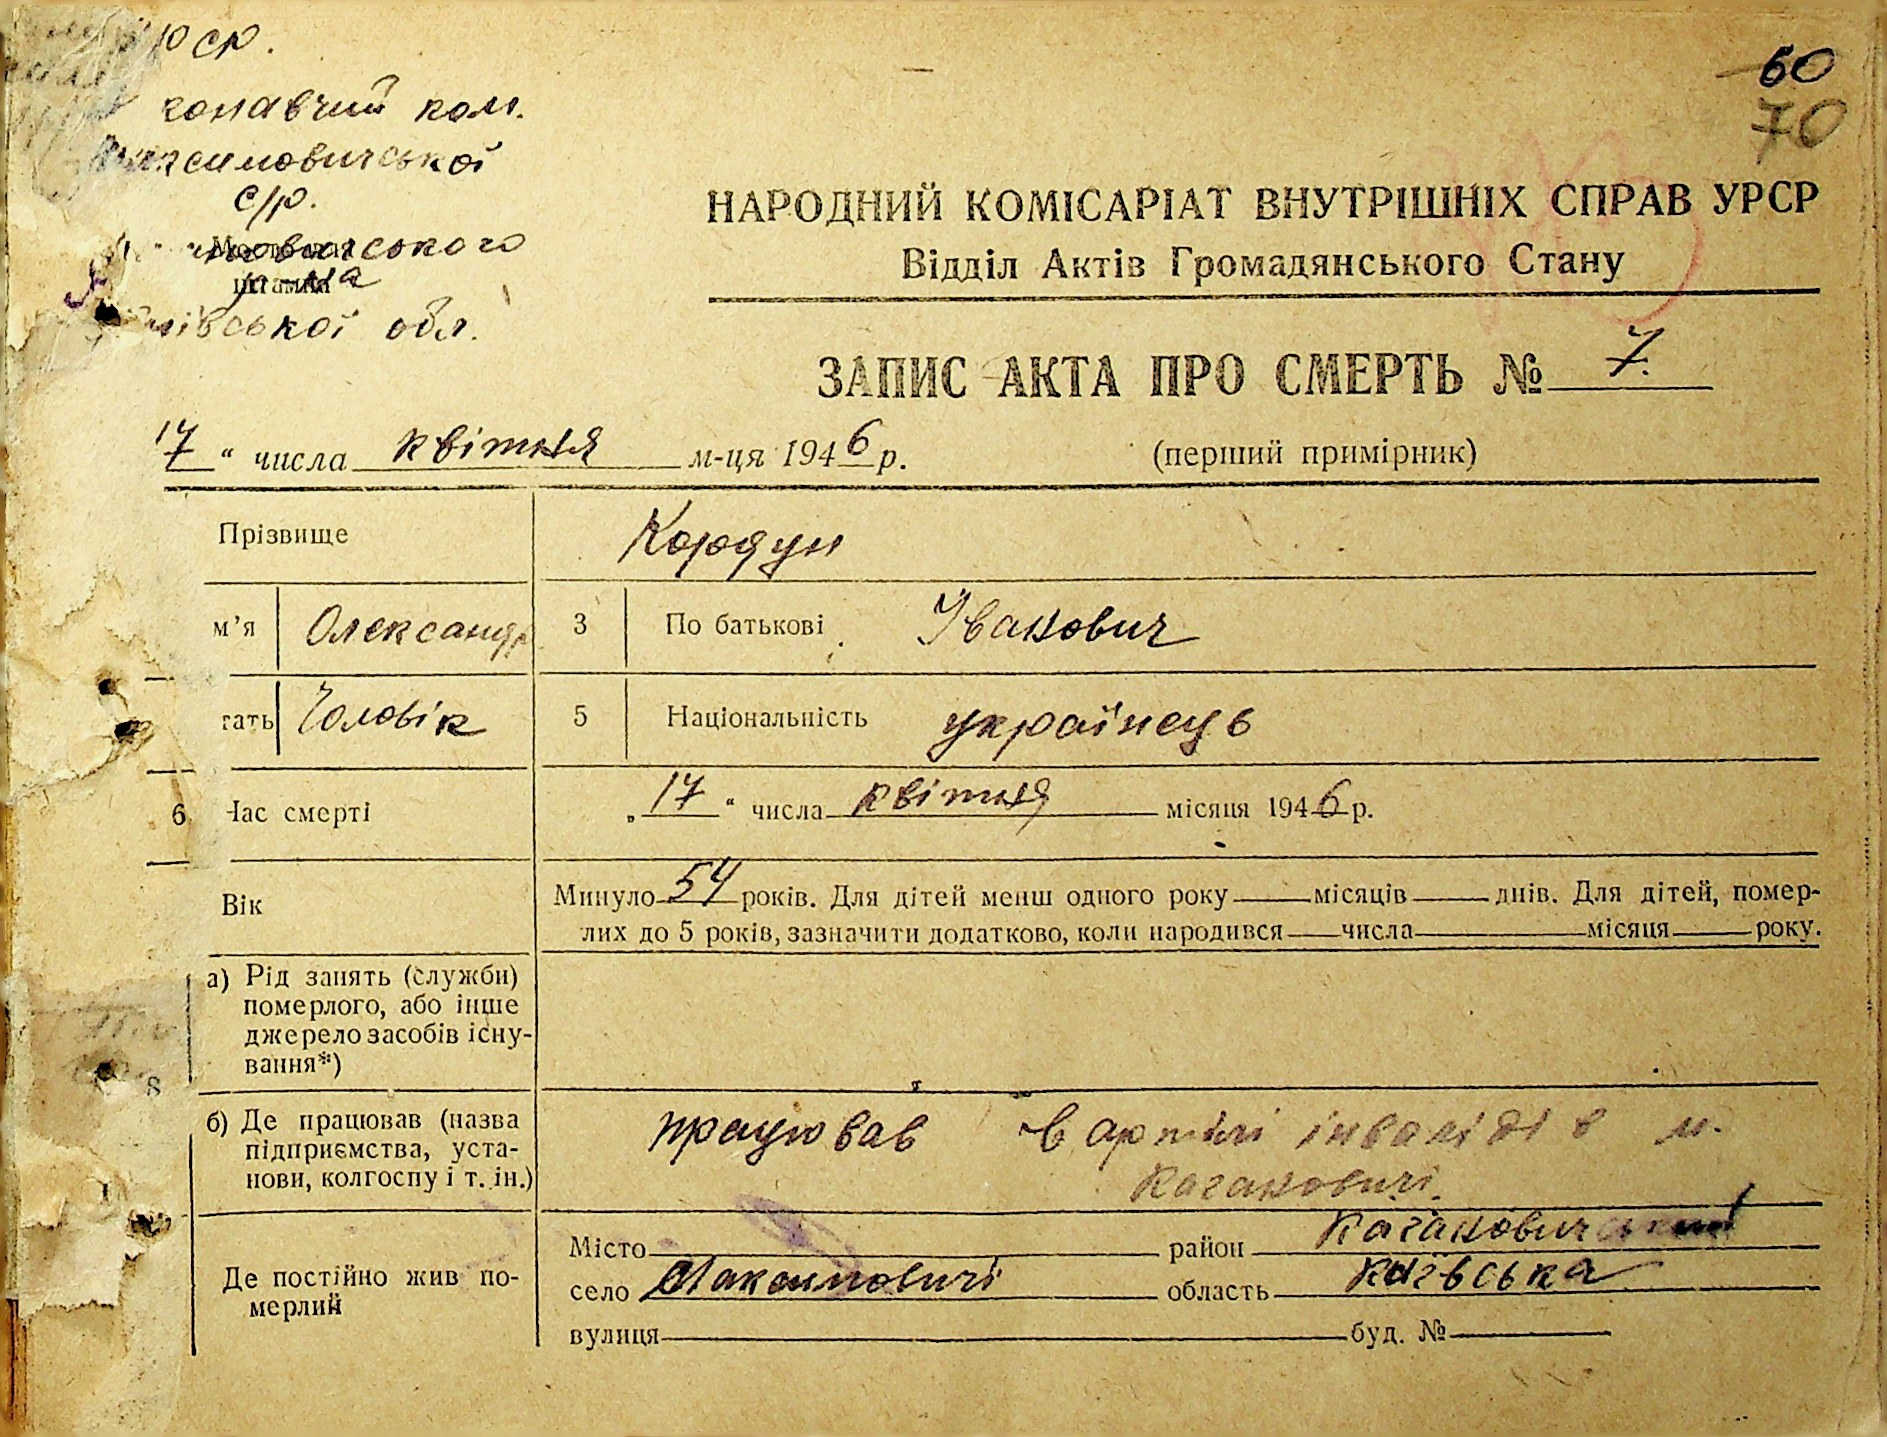 рср.
конавчий ком.
Максимовичської
с/р.
Місце для
штампа
р-на
ївської обл.
60
70
НАРОДНИЙ КОМІСАРІАТ ВНУТРІШНІХ СПРАВ УРСР
Відділ Актів Громадянського Стану
ЗАПИС АКТА ПРО СМЕРТЬ № 7.
17 " числа квітня м-ця 1946 р. (перший примірник)
Прізвище Кордун
м'я Олександр 3 По батькові Іванович
тать Чоловік 5 Національність українець
6 Час смерті „ 17 " числа квітня місяця 1946 р.
Вік Минуло 54 років. Для дітей менш одного року місяців днів. Для дітей, помер-
лих до 5 років, зазначити додатково, коли народився числа місяця року.
а) Рід занять (служби)
померлого, або інше
джерело засобів існу-
вання*)
8
б) Де працював (назва
підприємства, уста-
нови, колгоспу і т. ін.)
працював в артілі інвалідів м.
Кагановичі.
Де постійно жив по-
мерлий
Місто район Кагановичський
село Максимовичі область Київська
вулиця буд. №